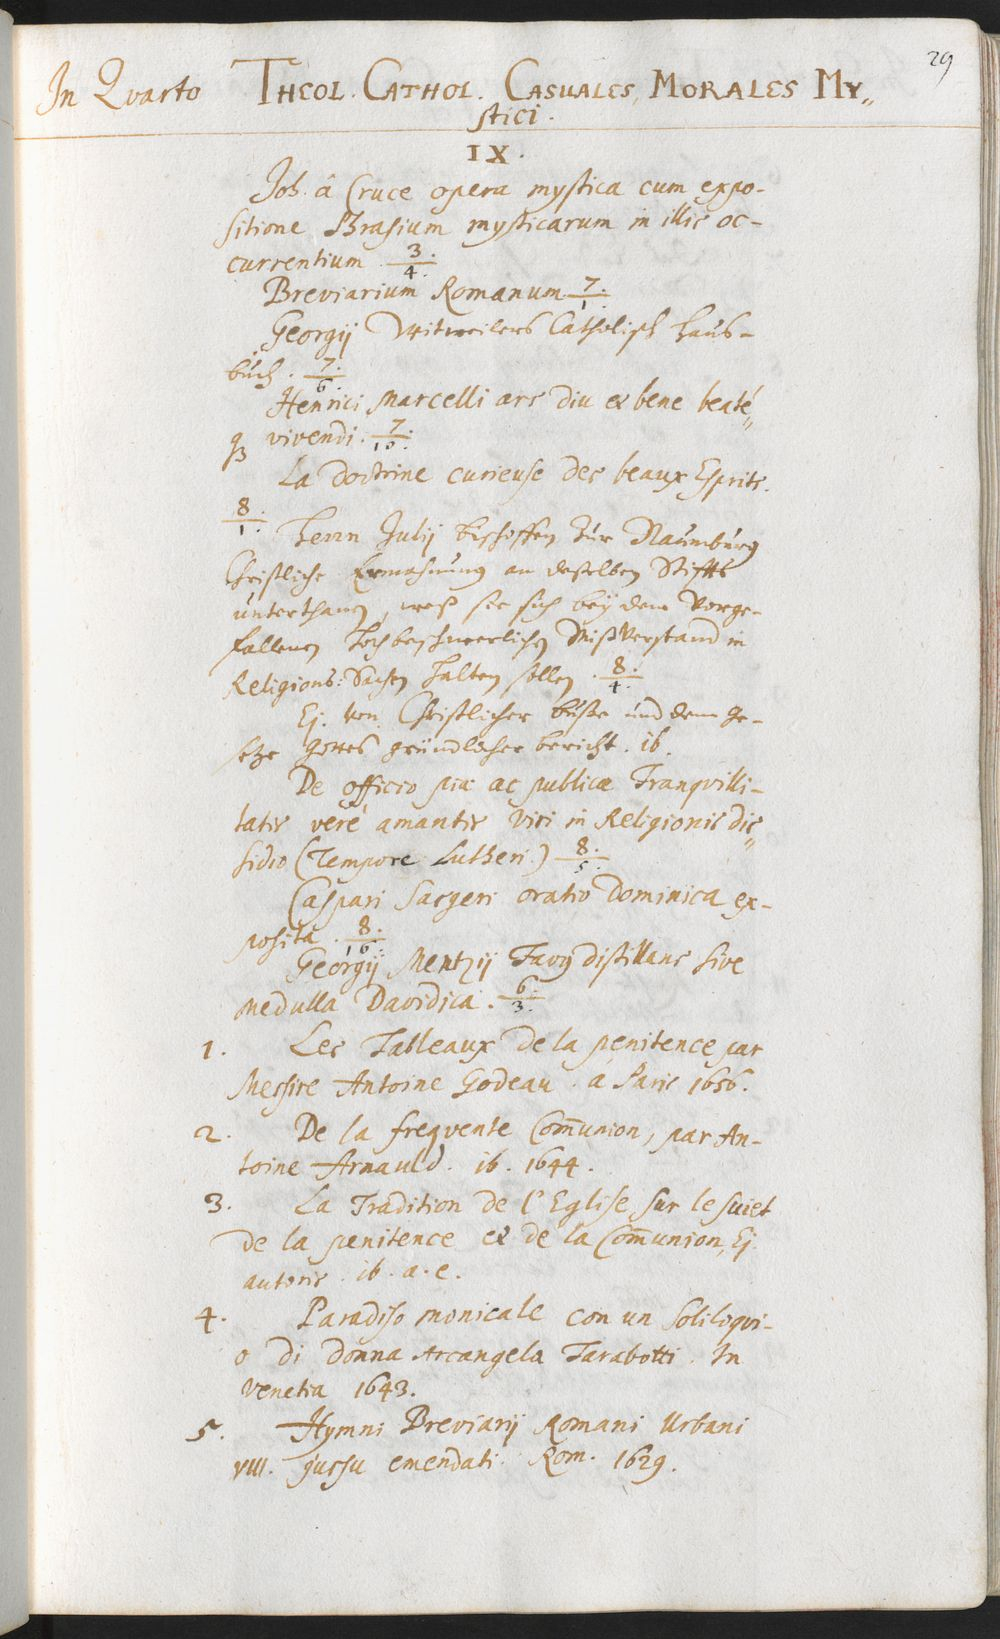 29
In Qvarto THEOL. CATHOL. CASUALES, MORALES MY„
stici.
IX.
Joh. â Cruce opera mystica cum expo-
sitione Phrasium mysticarum in illis oc-
currentium. 3/4.
Breviarium Romanum. 7/1.
Georgij Witweilers Catholisch Hauß-
buch. 7/6.
Henrici Marcelli ars diu et bene beaté„
q3 vivendi. 7/10.
La doctrine curieuse des beaux Esprits.
8/1.
Herrn Julij Bischoffen zur Naumburg
Christliche Ermahnung an deßelben Stiffts
unterthanen, weß sie sich bey dem Vorge-
fallenen Hochbeschwerlichen Mißverstand in
Religions-Sachen halten sollen. 8/4.
Ej. von Christlicher buße und dem Ge-
setze Gottes gründlicher bericht. ib.
De officio piae ac publicae Tranqvilli-
tatis veré amantis Viri in Religionis dis„
sidio (Tempore Lutheri.) 8/5.
Caspari Sasgeri oratio Dominica ex-
posita. 8/16.
Georgij Mentzij Favus distillans sive
medulla Davidica. 6/3.
1. Les Tableaux de la penitence par
Messire Antoine Godeau. a Paris 1656.
2. De la freqvente Com̄union, par An-
toine Arnauld. ib. 1644.
3. La Tradition de l'Eglise sur le suiet
de la penitence et de la Com̄union, Ej.
autoris. ib. a. e.
4. Paradiso monicale con un Soliloqvi-
o di donna Arcangela Tarabotti. In
Venetia 1643.
5. Hymni Breviarij Romani Urbani
VIII. jussu emendati. Rom. 1629.